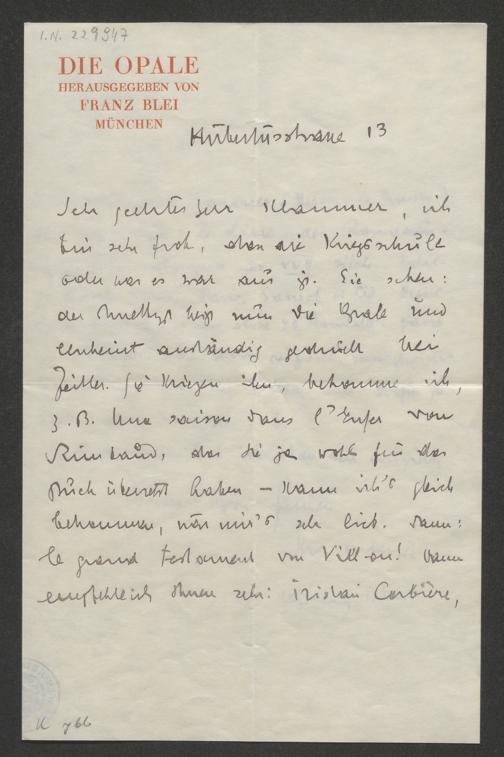 I.N. 229947
DIE OPALE
HERAUSGEGEBEN VON
FRANZ BLEI
MÜNCHEN
Hubertusstrasse 13
Sehr geehrter Herr Klammer, ich
bin sehr froh, dass die Kriegsschule
oder was es war aus is. Sie sehen:
der Amethyst heisst nun Die Opale und
erscheint anständig gedruckt bei
Zeitler. Sie kriegen ihn, bekomme ich,
z.B. Une saison dans l'Enfer von
Rimbaud, das Sie ja wohl für das
Buch übersetzt haben – kann ich's gleich
bekommen, wär mir's sehr lieb. Dann:
le grand testament von Villon! Dann
empfehle ich Ihnen sehr: Tristan Corbière,